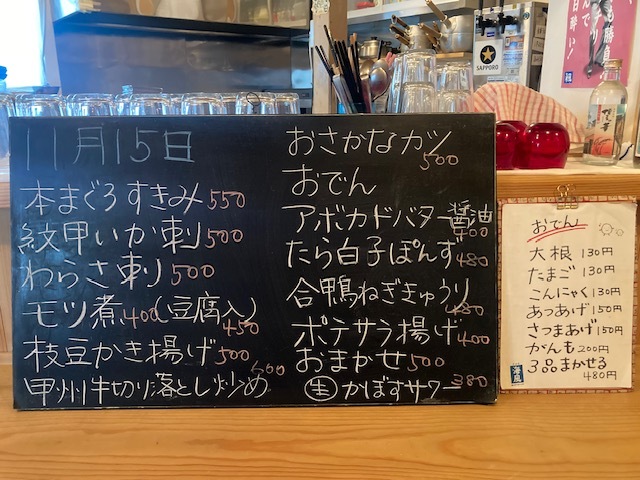 11月15日
本まぐろすきみ 550
紋甲いか刺 500
わらさ刺 500
モツ煮 400 (豆腐入) 450
枝豆かき揚げ 500
甲州牛切り落とし炒め 600
おさかなカツ 500
おでん
アボカドバター醤油 400
たら白子ぽんず 480
合鴨ねぎきゅうり 480
ポテサラ揚げ 400
おまかせ 500
生かぼすサワー 380
おでん
大根 130円
たまご 130円
こんにゃく 130円
あつあげ 150円
さつまあげ 150円
がんも 200円
3品まかせる
480円
SAPPORO